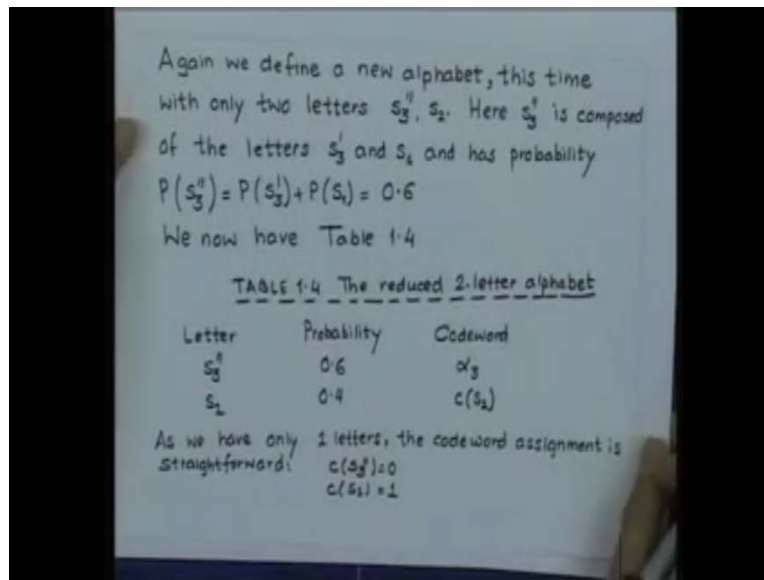 Again we define a new alphabet, this time
with only two letters S₃'', S₂. Here S₃'' is composed
of the letters S₃' and S₁ and has probability
P(S₃'') = P(S₃') + P(S₁) = 0.6
We now have Table 1.4
TABLE 1.4 The reduced 2-letter alphabet
Letter Probability Codeword
S₃'' 0.6 α₃
S₂ 0.4 c(S₂)
As we have only 2 letters, the codeword assignment is
straightforward: c(S₃'')=0
c(S₂)=1